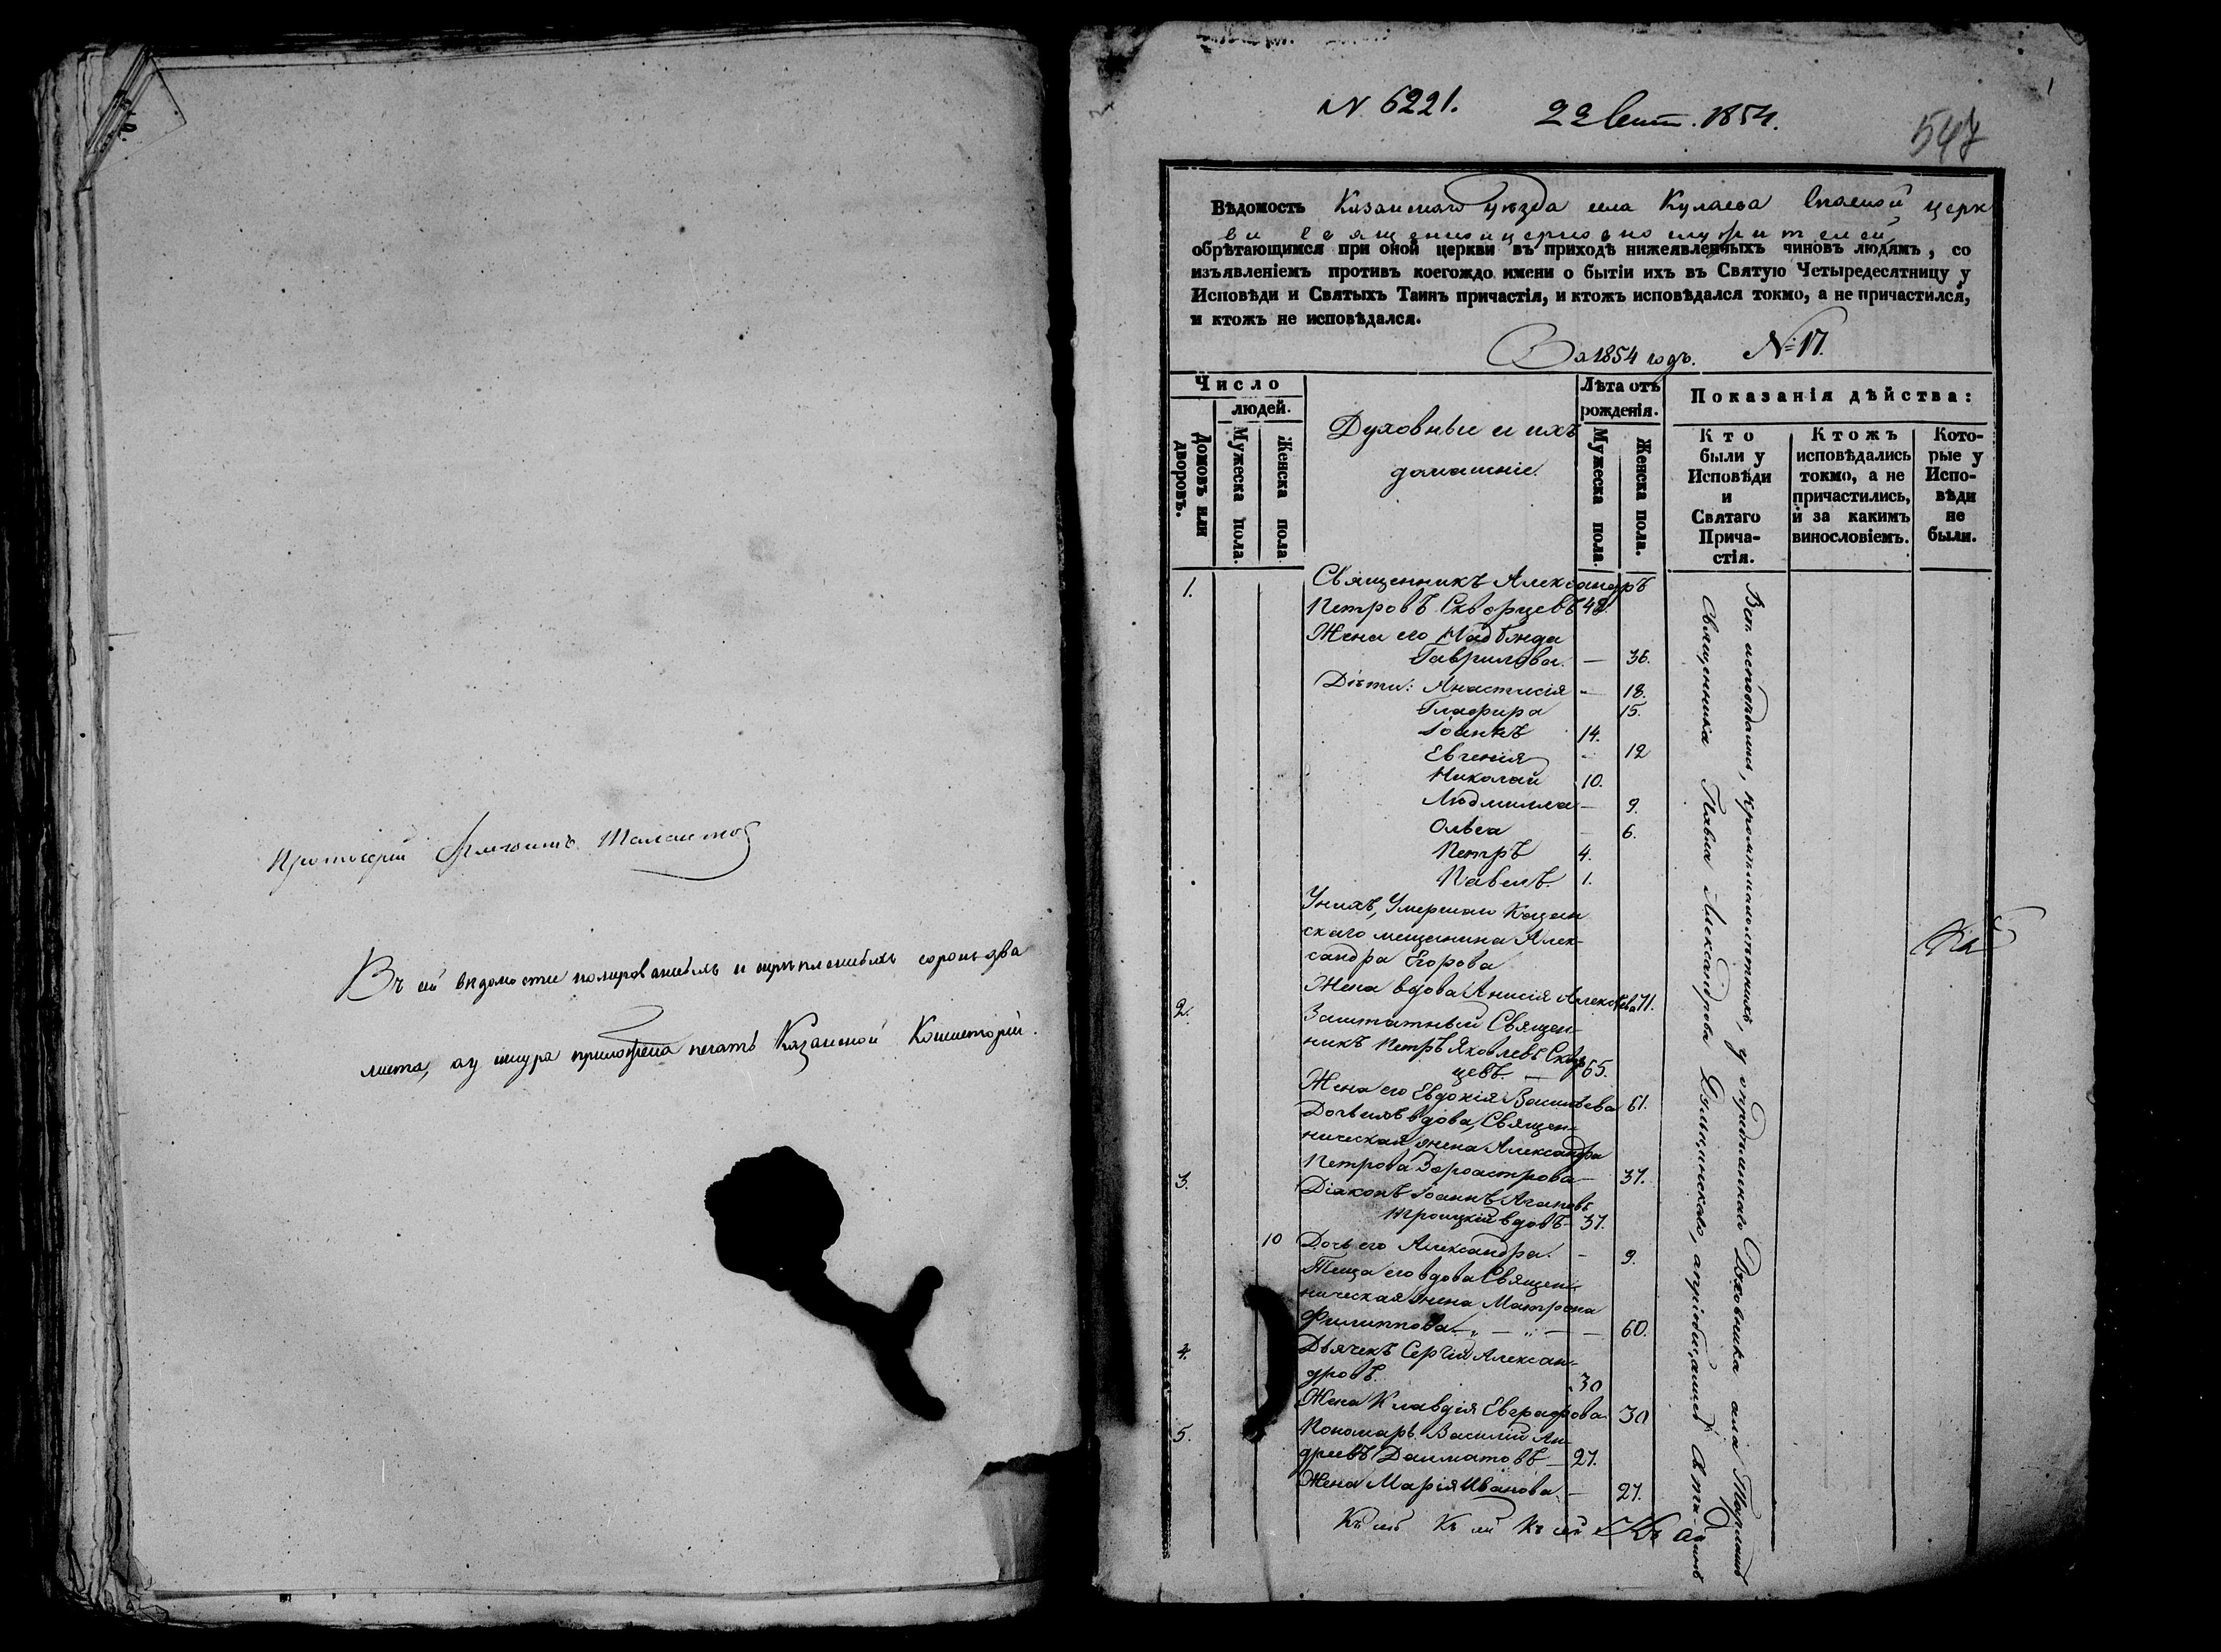 Протоіерей Талантовъ
Въ сей вѣдомости номерованныхъ и скрѣпленныхъ сорокъ два
листа, а у шнура приложена печать Казанской Консисторіи.
N 6221. 22 Сент. 1854.
547
1
Вѣдомость Казанскаго уѣзда села Кулаева Спасской церк
ви священноицерковнослужителей
обрѣтающимся при оной церкви въ приходѣ нижеявленныхъ чиновъ людямъ, со
изъявленіемъ противъ коегождо имени о бытіи ихъ въ Святую Четыредесятницу у
Исповѣди и Святыхъ Таинъ причастія, и ктожъ исповѣдался токмо, а не причастился,
и ктожъ не исповѣдался.
За 1854 годъ. № 17.
Число
людей.
Домовъ или дворовъ.
Мужеска пола.
Женска пола
Духовные и ихъ
домашніе.
Лѣта отъ
рожденія.
Мужеска пола.
Женска пола.
Показанія дѣйства:
Кто
были у
Исповѣди
и
Святаго
Прича-
стія.
Ктожъ
исповѣдались
токмо, а не
причастились,
и за какимъ
винословіемъ.
Кото-
рые у
Испо-
вѣди
не
были.
1. Священникъ Александръ
Петровъ Скворцевъ 48.
Жена его Надѣжда
Гаврилова. — 36.
Дѣти: Анастасія - 18.
Глафира 15.
Іоаннъ 14.
Евгенія - 12
Николай 10.
Людмилла — 9.
Ольга — 6.
Петръ 4.
Павелъ. 1.
У нихъ, Умершаго Казан
скаго мещанина Алек-
сандра Егорова
Жена вдова Анисія Алексѣева 71.
2. Заштатный Священ-
никъ Петръ Яковлевъ Сквор
цевъ. — 65.
Жена его Евдокія Васильева 61.
Дочь ихъ вдова, Священ-
ническая жена Александра
Петрова Зороастрова — 37.
3. Діаконъ Іоаннъ Агаповъ
Троицкій вдовъ - 37.
10 Дочь его Александра. - 9.
Теща его вдова Священ-
ническая жена Матрона
Филиппова — „ — „ — — 60.
4. Дьячекъ Сергій Алексан-
дровъ. 30
Жена Клавдія Евграфова 30
5. Пономарь Василій Ан-
дреевъ Далматовъ — 27.
Жена Марія Иванова. — 27.
Къ сей Къ сей Къ сей
Всѣ исповѣдались, кромѣ малолѣтнихъ, у опредѣленнаго Духовника села
Священника Павла Александрова пріобщались Св.